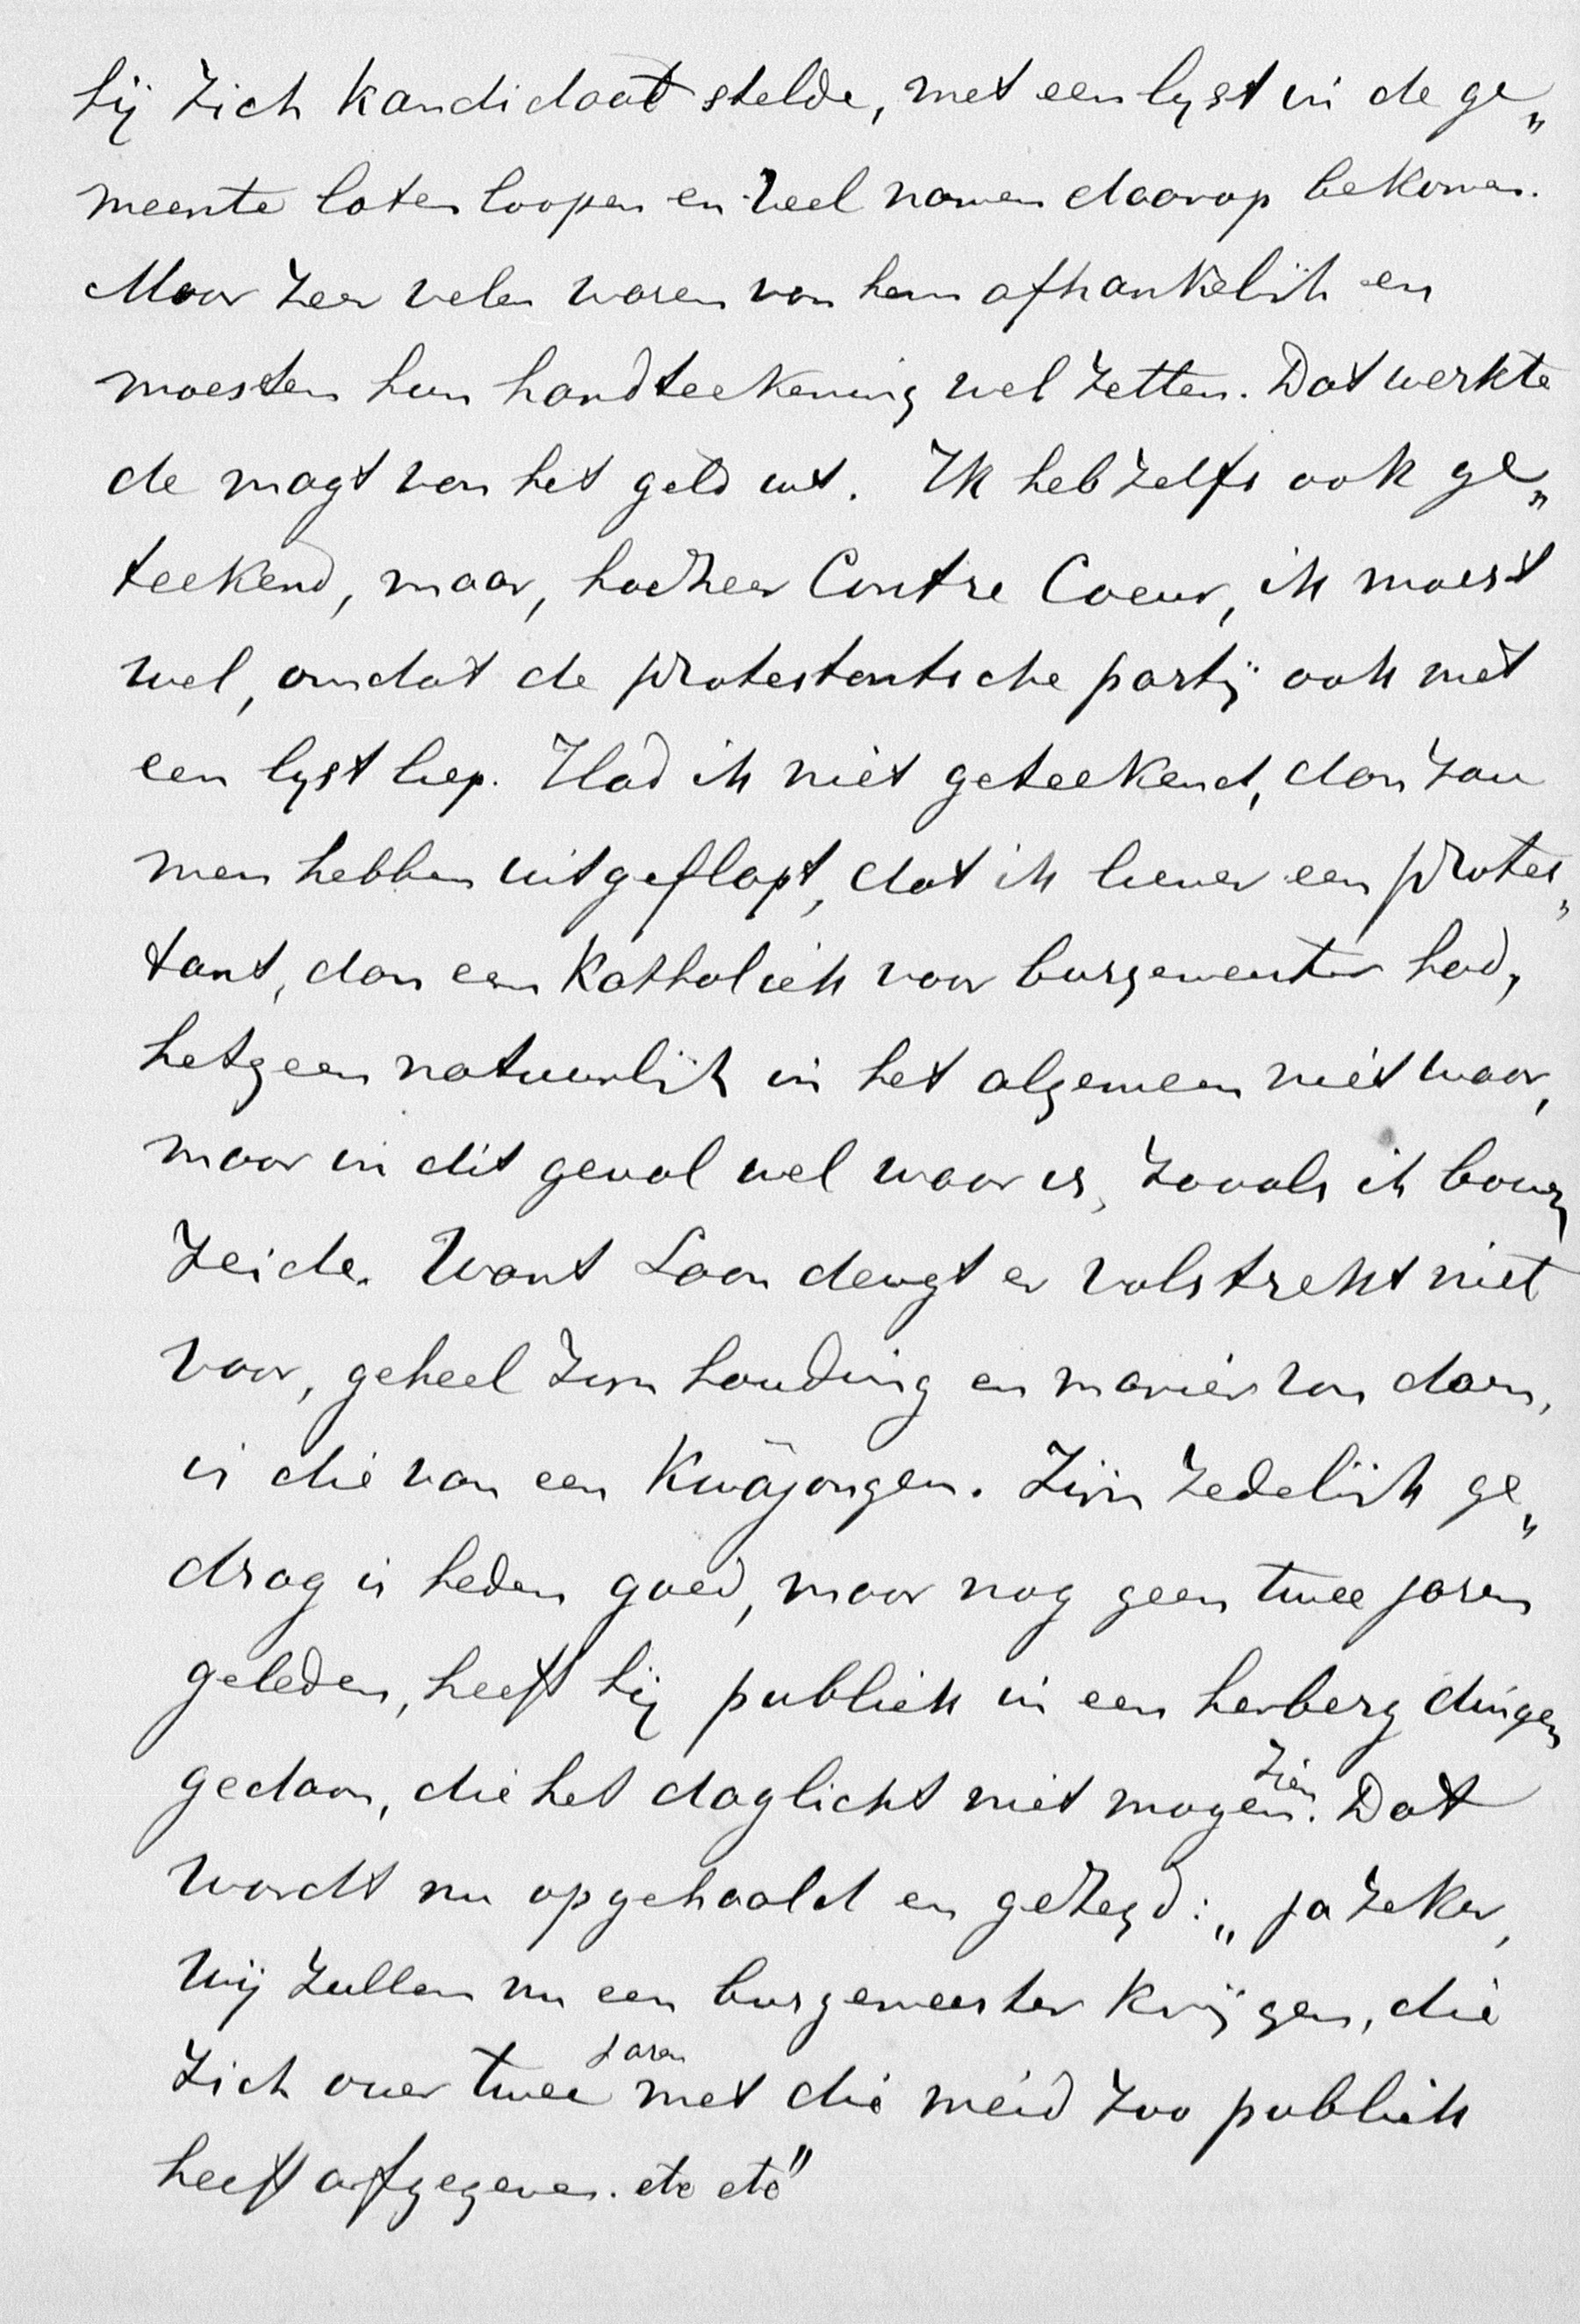 hij zich kandidaat stelde, met een lyst in de ge„
meente laten loopen en veel namen daarop bekomen.
Maar zeer velen waren van hem afhankelijk en
moesten hun handteekening wel zetten. Dat werkte
de magt van het geld uit. Ik heb zelfs ook ge„
teekend, maar, hoezeer Contre Coeur, ik moest
wel, omdat de protestantsche partij ook met
een lyst liep. Had ik niet geteekend, dan zou
men hebben uitgeflapt, dat ik liever een protes„
tant, dan een Katholiek voor burgemeester had,
hetgeen natuurlijk in het algemeen niet waar,
maar in dit geval wel waar is, zooals ik boven
zeide. Want Laan deugt er volstrekt niet
voor, geheel zijn houding en manier van doen,
is die van een Kwâjongen. Zijn zedelijk ge„
drag is heden goed, maar nog geen twee jaren
geleden, heeft hij publiek in een herberg dingen
gedaan, die het daglicht niet mogen zien. Dat
wordt nu opgehaald en gezegd: „ja zeker,
wij zullen nu een burgemeester krijgen, die
zich over twee jaren met die meid zoo publiek
heeft afgegeven. etc etc"